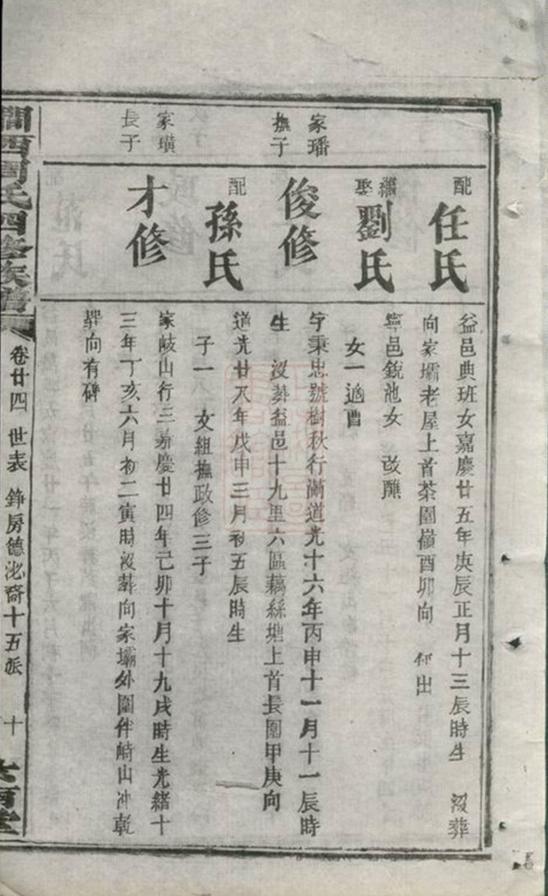 配
任氏
益邑典班女嘉慶廿五年庚辰正月十三辰時生 没葬
向家壩老屋上首茶園嶺酉卯向 出
繼娶
劉氏
寧邑銃池女 改醮
女一適曹
家璠撫子
俊修
字秉忠號樹秋行蘭道光十六年丙申十一月十一辰時
生 没葬益邑十九里六區藕絲塘上首長園甲庚向
配
孫氏
道光廿八年戊申三月初五辰時生
子一 女組撫政修三子
家璜長子
才修
家岐山行三嘉慶廿四年己卯十月十九戌時生光緒十
三年丁亥六月初二寅時没葬向家壩外園伴崎山冲乾
巽向有碑
周氏四修族譜
卷廿四 世表 錚房德沘裔十五派 十